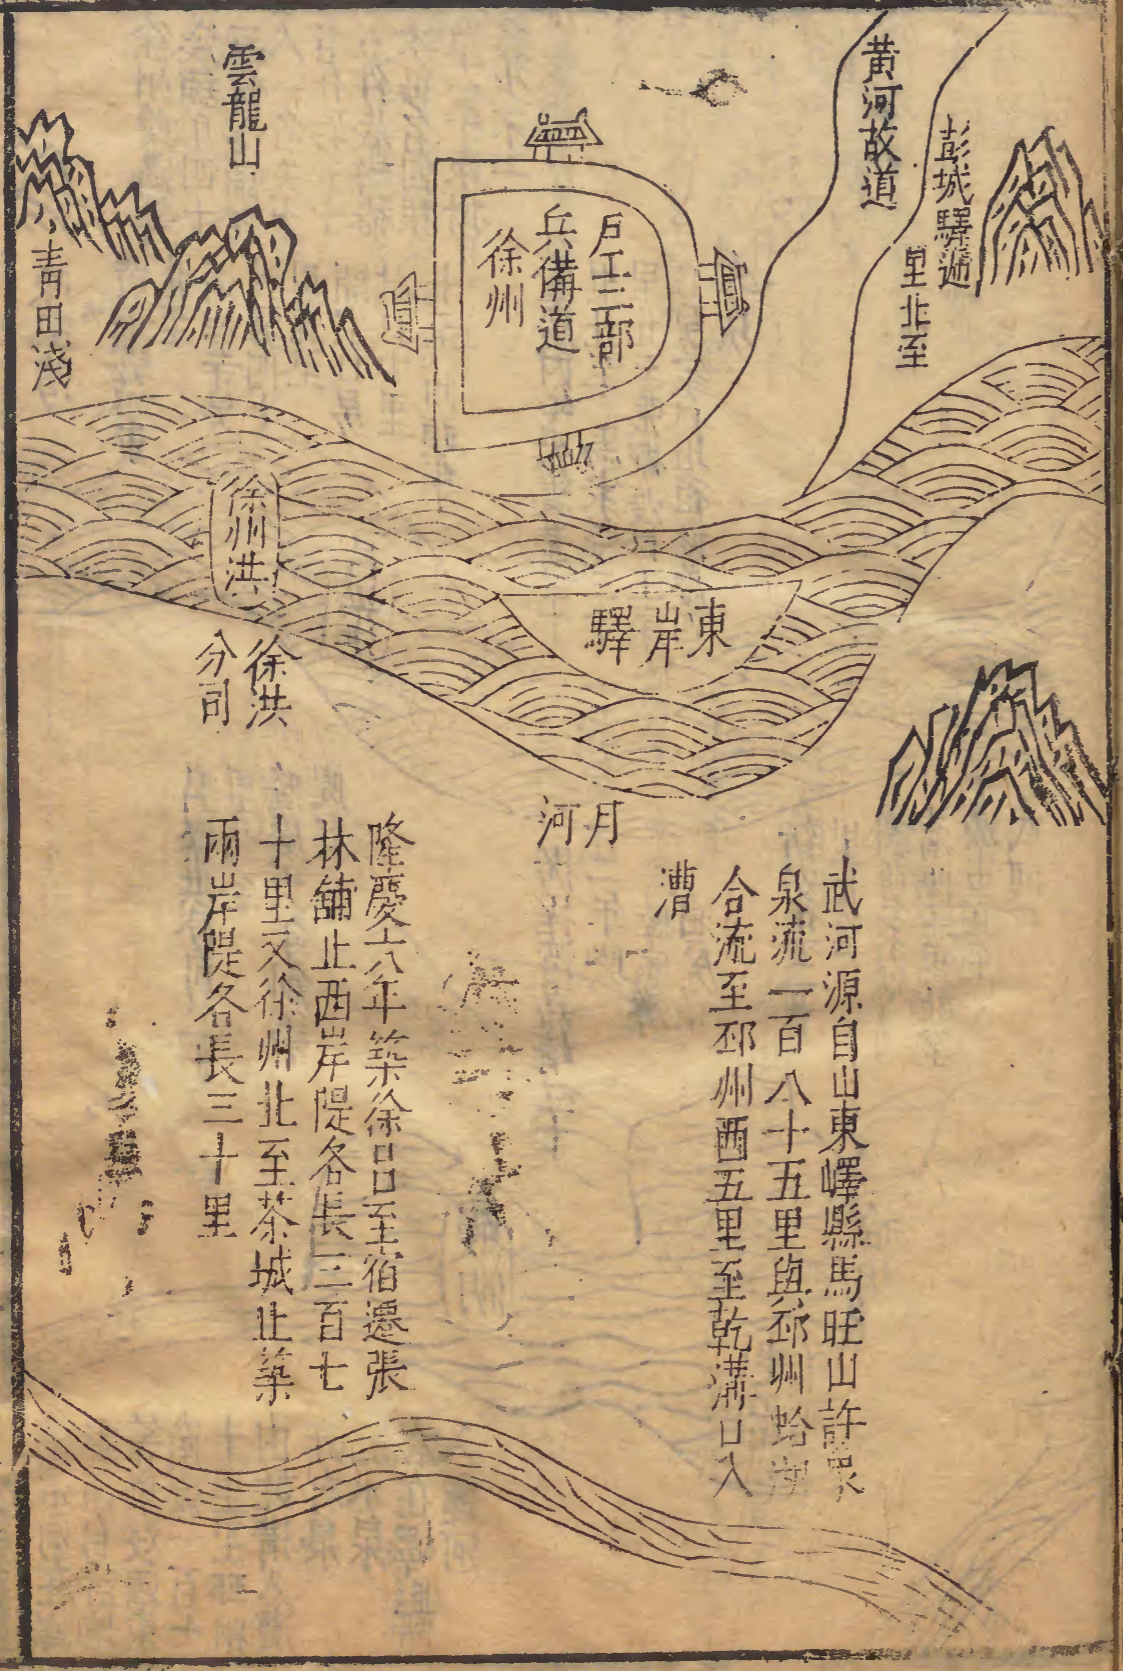 黄河故道
彭城驛遞
里北至
戶工二部
兵備道
徐州
雲龍山
青田淺
徐州洪
東岸驛
徐洪
分司
月河
武河源自山東嶧縣馬旺山許
泉流一百八十五里與邳州蛤湖
合流至邳州西五里至乾溝口入
漕
隆慶六年築徐呂至宿遷張
林舖止西岸隄各長三百七
十里又徐州北至茶城止築
兩岸隄各長三十里